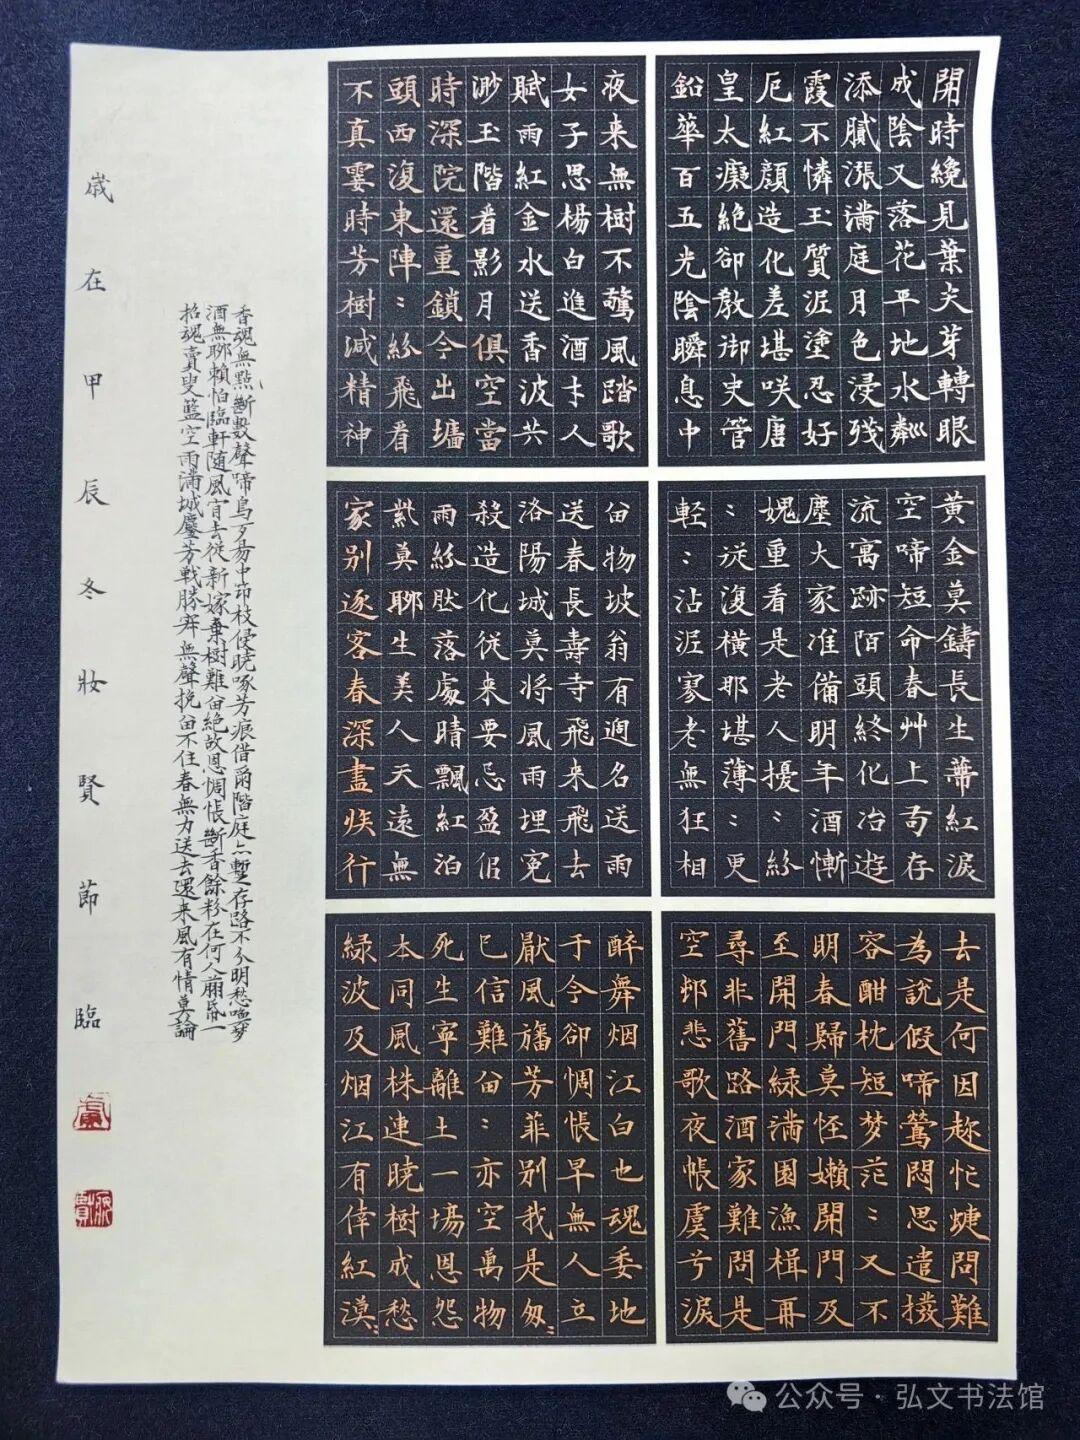 開時纔見葉尖芽轉眼
成陰又落花平地水粼
添膩漲滿庭月色浸殘
霞不憐玉質泥塗忍好
厄紅顏造化差堪咲唐
皇太癡絕卻教御史管
鉛華百五光陰瞬息中
夜来無樹不驚風踏歌
女子思楊白進酒才人
賦雨紅金水送香波共
渺玉階看影月俱空當
時深院還重鎖今出墻
頭西復東陣〻紛飛看
不真霎時芳樹減精神
黃金莫鑄長生蒂紅淚
空啼短命春艸上苟存
流寓跡陌頭終化冶遊
塵大家准備明年酒慚
媿重看是老人擾〻紛
〻從復橫那堪薄〻更
輕〻沾泥寥老無狂相
留物坡翁有過名送雨
送春長壽寺飛来飛去
洛陽城莫將風雨埋冤
殺造化従来要忌盈佀
雨紛肰落處晴飄紅泊
紫莫聊生美人天遠無
家別逐客春深盡族行
去是何因趂忙蜨問難
為說假啼鶯悶思遣撥
容酣枕短梦茫〻又不
明春歸莫怪嬾開門及
至開門綠滿園漁楫再
尋非舊路酒家難問是
空邨悲歌夜帳虞兮淚
醉舞烟江白也魂委地
于今卻惆悵早無人立
厭風旛芳菲別我是匆〻
已信難留〻亦空萬物
死生寧離土一場恩怨
本同風株連曉樹成愁
綠波及烟江有倖紅漠〻
香魂無點斷數聲啼鳥中節枝侵曉啄芳痕借爾階庭亦暫存路不分明愁夢
酒無聊賴怕臨軒随風肯去從新嫁棄樹難留絕故恩惆悵斷香餘粉在何人一
招魂賣叟籃空雨滿城芳戰勝無聲挽留不住春無力送去還来風有情莫論
嵗在甲辰冬妝賢莭臨
公众号·弘文书法馆